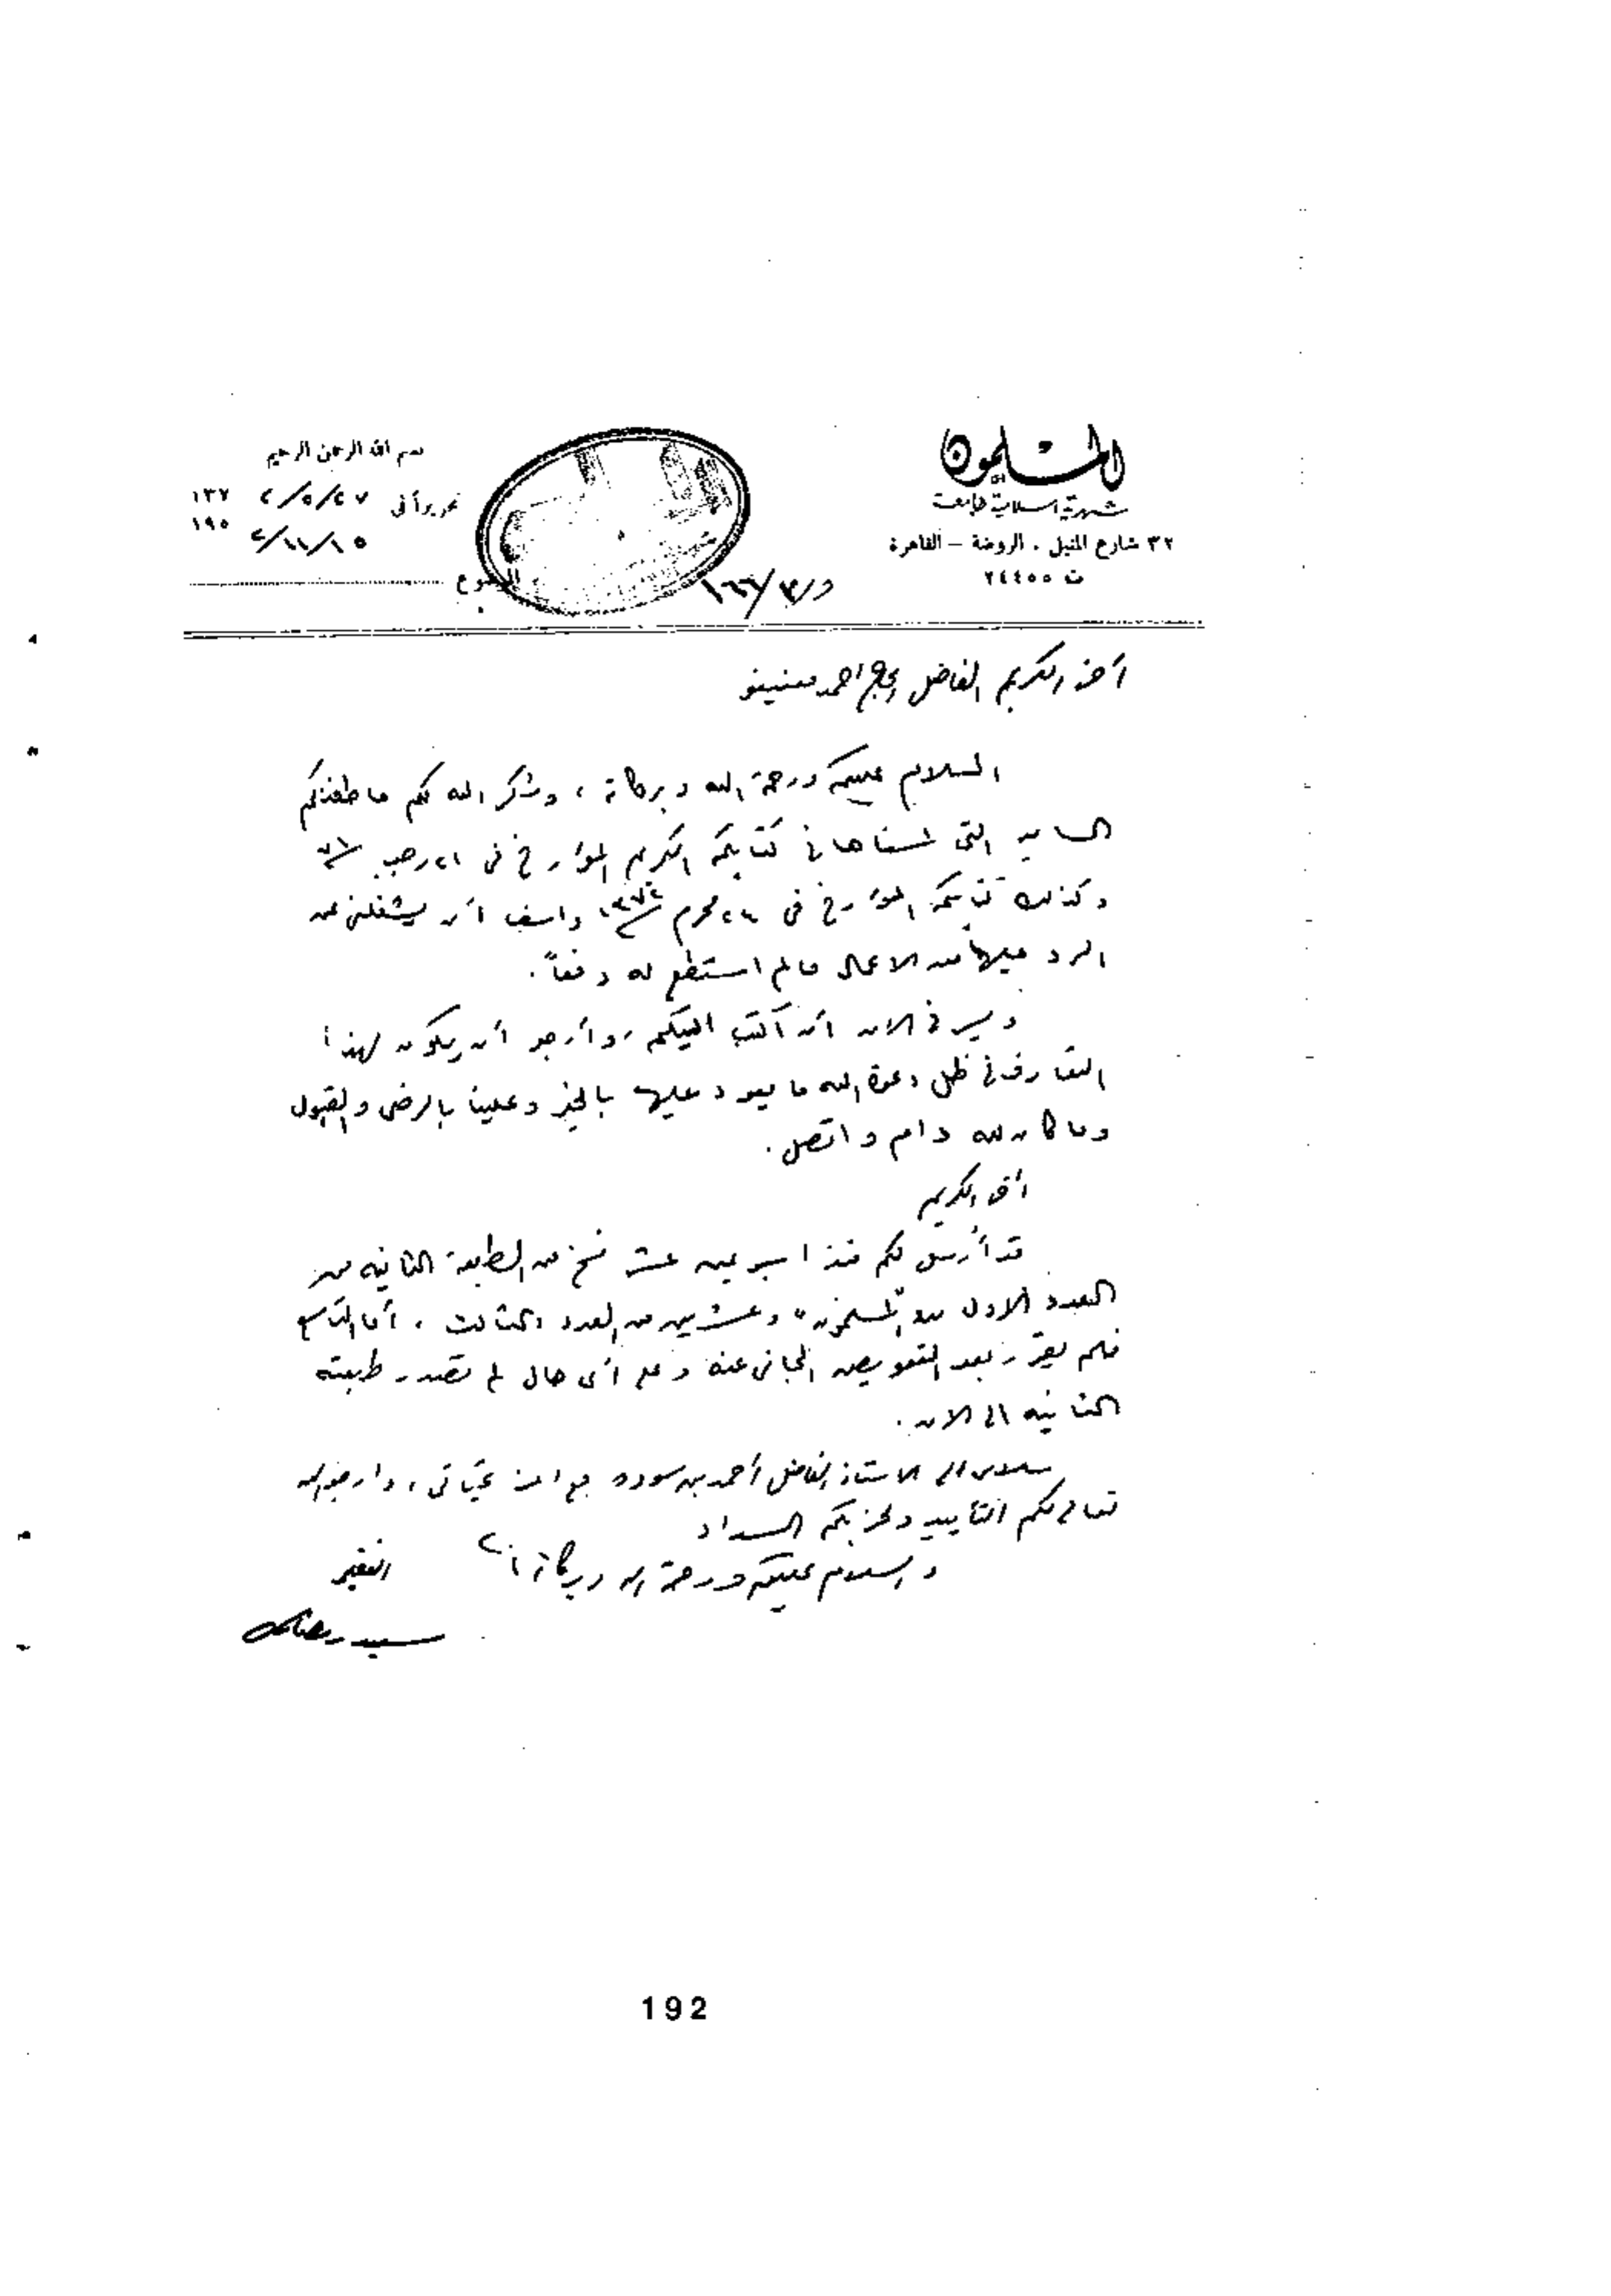 المسلمون
شهرية إسلامية جامعة
٣٢ شارع المنيل . الروضة – القاهرة
ت ٢٤٤٥٥
بسم الله الرحمن الرحيم
تحريرا فى ٢٧/٥/٢ ١٣٧
١٥/١١/٢ ١٩٥
الموضوع
أخى الكريم الفاضل الحاج احمد معنينو
السلام عليكم ورحمة الله وبركاته ، وشكر الله لكم عاطفتكم
الساميه التى لمسناها فى كتابكم الكريم المؤرخ فى ٢١ رجب
وكذلك كتابكم المؤرخ فى محرم وأسف أن يشغلنى عن
الرد عليها من الاعمال مالم استطع له دفعاً .
ويسرنى الان أن أكتب اليكم ، وأرجو أن يكون لهذا
التعارف فى ظل دعوة الله ما يعود عليها بالخير وعلينا بالرضى والقبول
وما كان لله دام واتصل .
أخى الكريم
قد أرسل لكم منذ اسبوعين عشر نسخ من الطبعة الثانيه من
العدد الاول من "المسلمون" وعشرين من العدد الثالث ، أما التاسع
فلم يتقرر بعد التعويض المجانى عنه وعلى أى حال لم تصدر طبعته
الثانيه الى الان .
سلامى الى الاستاذ الفاضل أحمد بن سوده مع تحياتى ، وارجو الله
تعالى لكم التأييد ولحزبكم السداد
والسلام عليكم ورحمة الله وبركاته ؛
الفقير
سعيد رمضان
192